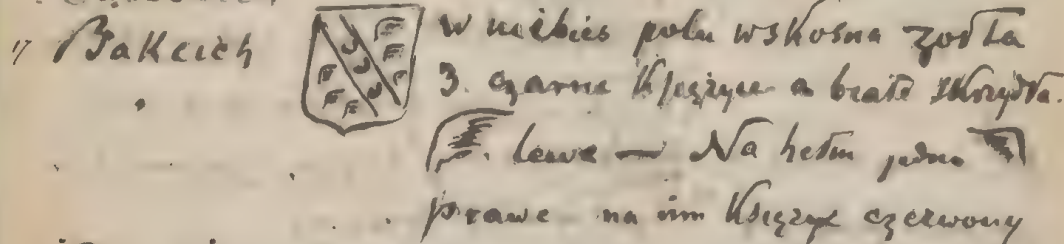 17 Bakcich w niebies polu wskosna zołta
3. czarne Księżyce a białe skrzydła.
lewe — Na hełm jedno
prawe na nim Księżyc czerwony